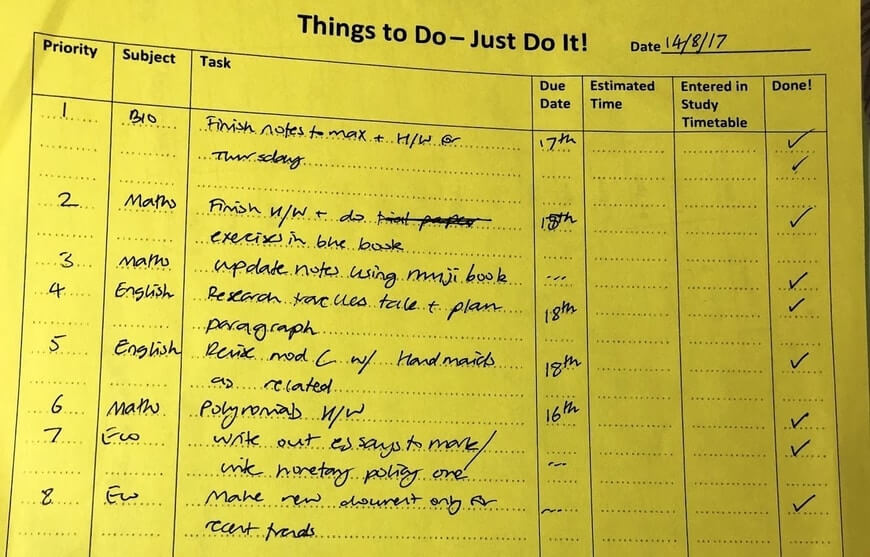 Things to Do – Just Do It!
Date 14/8/17
Priority Subject Task Due Date Estimated Time Entered in Study Timetable Done!
1 BIO Finish notes to max + H/W 17th ✓
Thursday ✓
2 Maths Finish H/W + do trial paper 18th ✓
exercises in blue book
3 Maths update notes using muji book --- ✓
4 English Research travellers tale + plan 18th ✓
paragraph
5 English mod C w/ Handmaids 18th ✓
as related
6 Maths Polynomials H/W 16th ✓
7 Eco write out essays to mark/ ✓
write monetary policy one ---
8 Eco Make new document only for --- ✓
recent trends